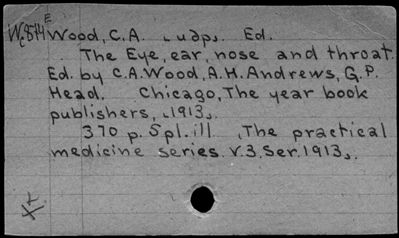 Wood, C.A. Ed.
The Eye, ear, nose and throat.
Ed. by C.A. Wood, A.H. Andrews, G.P.
Head. Chicago, The year book
publishers, 1913.
370 p. 5pl. ill The practical
medicine series. V.3. Ser. 1913.